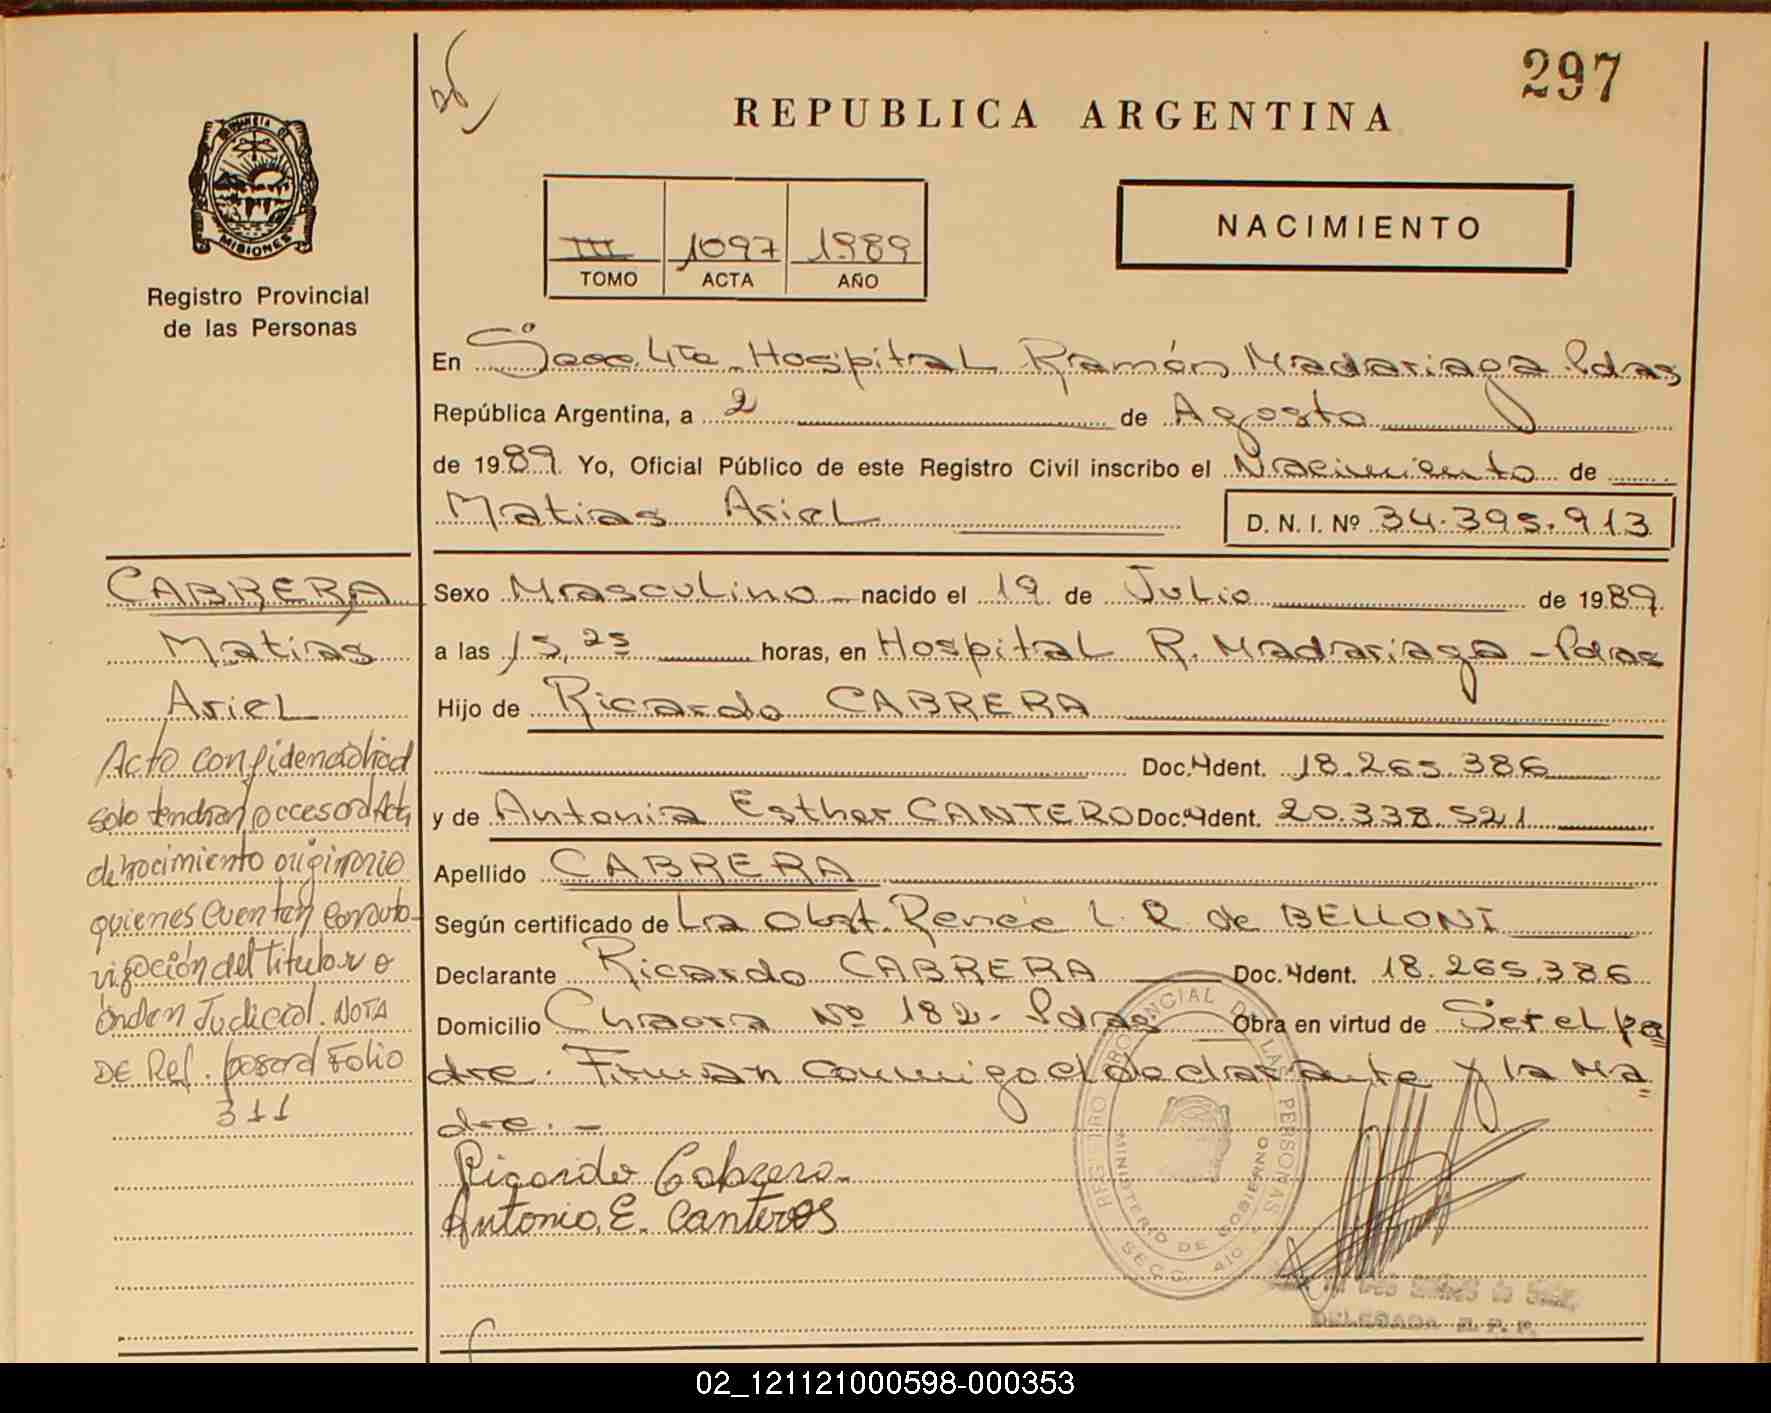 297
REPUBLICA ARGENTINA
PROVINCIA DE
MISIONES
Registro Provincial
de las Personas
NACIMIENTO
III 1097 1989
TOMO ACTA AÑO
En Secc. 4ta. Hospital Ramón Madariaga Pdas
República Argentina, a 2 de Agosto
de 1989. Yo, Oficial Público de este Registro Civil inscribo el Nacimiento de
Matias Ariel
D. N. I. Nº 34.395.913
CABRERA
Matias
Ariel
Acto confidencialidad
solo tendran acceso al Acta
de nacimiento originario
quienes cuenten con auto-
rización del titular o
orden Judicial. NOTA
DE Ref. pasar al Folio
311
Sexo Masculino nacido el 19 de Julio de 1989.
a las 15,25 horas, en Hospital R. Madariaga - Pdas
Hijo de Ricardo CABRERA
Doc. Ident. 18.265.386
y de Antonia Esther CANTERO Doc. Ident. 20.338.521
Apellido CABRERA
Según certificado de La Obst. Renée L. R. de BELLONI
Declarante Ricardo CABRERA Doc. Ident. 18.265.386
Domicilio Chacra Nº 182 - Pdas Obra en virtud de Ser el pa
dre. Firman conmigo el declarante y la Ma
dre. -
Ricardo Cabrera
Antonia E. Canteros
REGISTRO PROVINCIAL DE LAS PERSONAS
MINISTERIO DE GOBIERNO
SECC.
DELEGADA R. P. P.
02_121121000598-000353